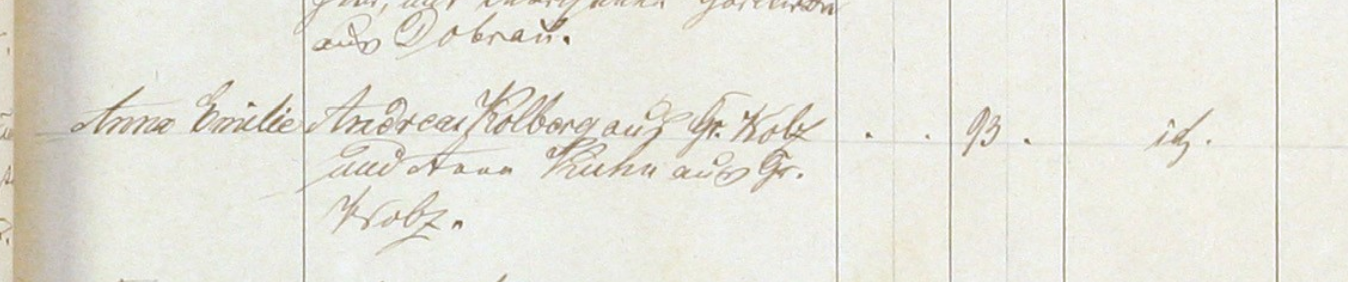 aus Dobrau.
Anna Emilie Andreas Kolberg aus Gr. Wolz . . 93. id.
und Anna Kuhn aus Gr.
Wolz.